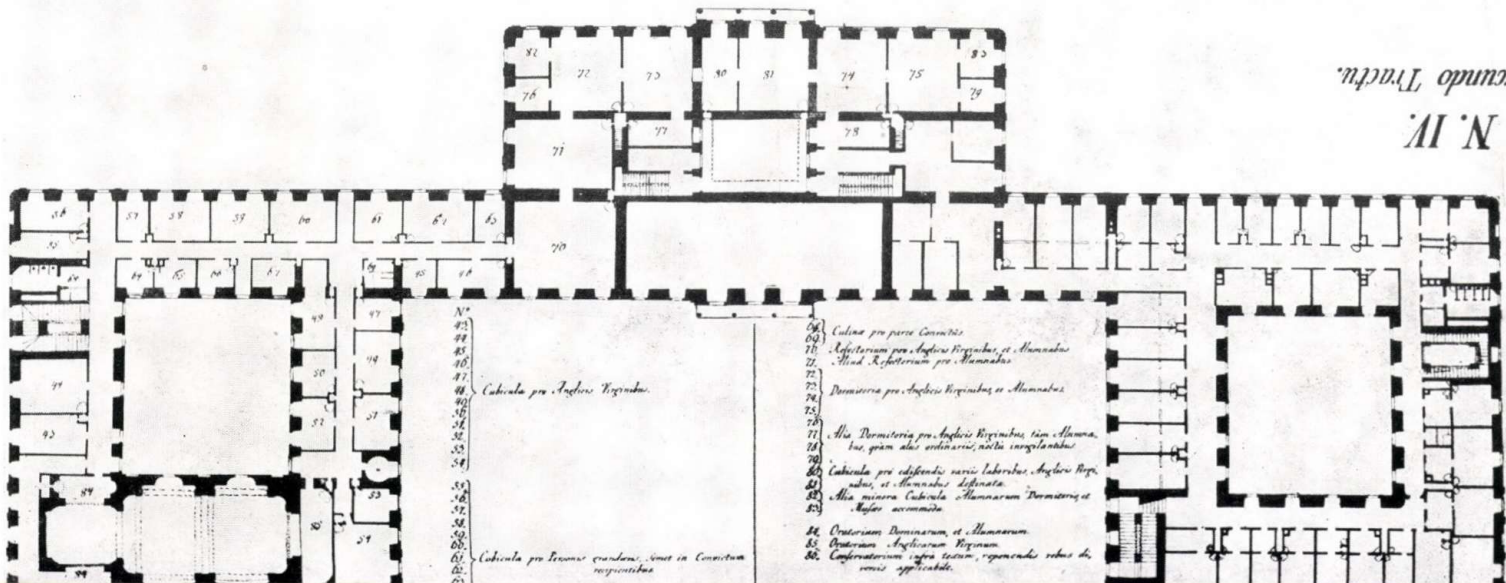 cundo Tractu.
N. IV.
82
72
73
80
81
74
75
83
76
79
71
77
78
56
57
58
59
60
61
62
63
55
70
64
65
66
67
45
46
48
47
50
49
44
52
51
43
84
53
54
Nº
43.
44.
45.
46.
47.
48. Cubicula pro Anglicis Virginibus.
49.
50.
51.
52.
53.
54.
55.
56.
57.
58.
59.
60.
61. Cubicula pro Personis grandævis, semet in Convictum
62. recipientibus
68. Culinæ pro parte Convictûs
69.
70. Refectorium pro Anglicis Virginibus, et Alumnabus
71. Aliud Refectorium pro Alumnabus
72.
73. Dormitoria pro Anglicis Virginibus, et Alumnabus
74.
75.
76.
77. Alia Dormitoria pro Anglicis Virginibus, tàm Alumna,
78. bus, quàm aliis
79.
80. Cubicula pro ediscendis variis laboribus, Anglicis Virgi,
81. nibus, et Alumnabus destinata
82. Alia minora Cubicula Alumnarum Dormitoriis, et
83. accommoda
84. Oratorium Dominarum, et Alumnarum
85. Oratorium Anglicarum Virginum
86. Conservatorium infra tectum, reponendis rebus di,
versis applicabile.